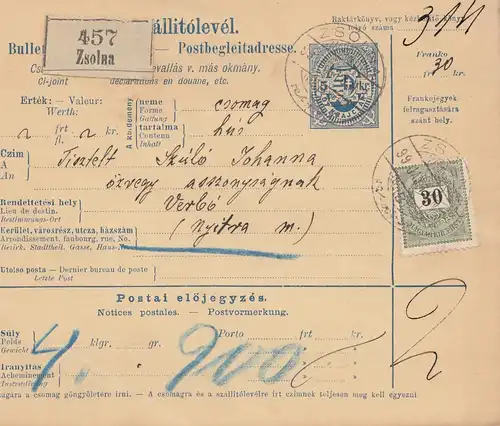 Szállítólevél.
Raktárkönyv, vagy
száma
457
Zsolna
Bulle
Postbegleitadresse.
Franko
frt 30 kr.
Cl-joint
déclarations en douane, etc.
evallás v. más okmány.
Érték: - Valeur:
Werth:
frt
fl.
kr.
A küldemény
neme
Forme
Gattung
csomag
tartalma
Contenu
Inhalt
hús
5 kr
ZSO
Frankojegyek
felragasztására
szánt hely.
Czim
A
An
Tisztelt Szúló Johanna
özvegy asszonyságnak
Rendeltetési hely
Lieu de destin.
Bestimmungs-Ort
Verbó
(Nyitra m.)
Kerület, városrész, utcza, házszám
Arrondissement, faubourg, rue, No.
Bezirk, Stadttheil, Gasse, Haus-
ZS
30
Utolso posta - Dernier bureau de poste
Letzte Post
Postai előjegyzés.
Notices postales. - Postvormerkung.
Súly
Poids
Gewicht
4.
klgr.
gr.
900
Porto
frt
kr.
2
Irányitás
Acheminement
Instradirung
agára a csomag göngyöletére irni. - A csomagra és a szállitólevélre irt czimnek teljesen meg kell egyezni